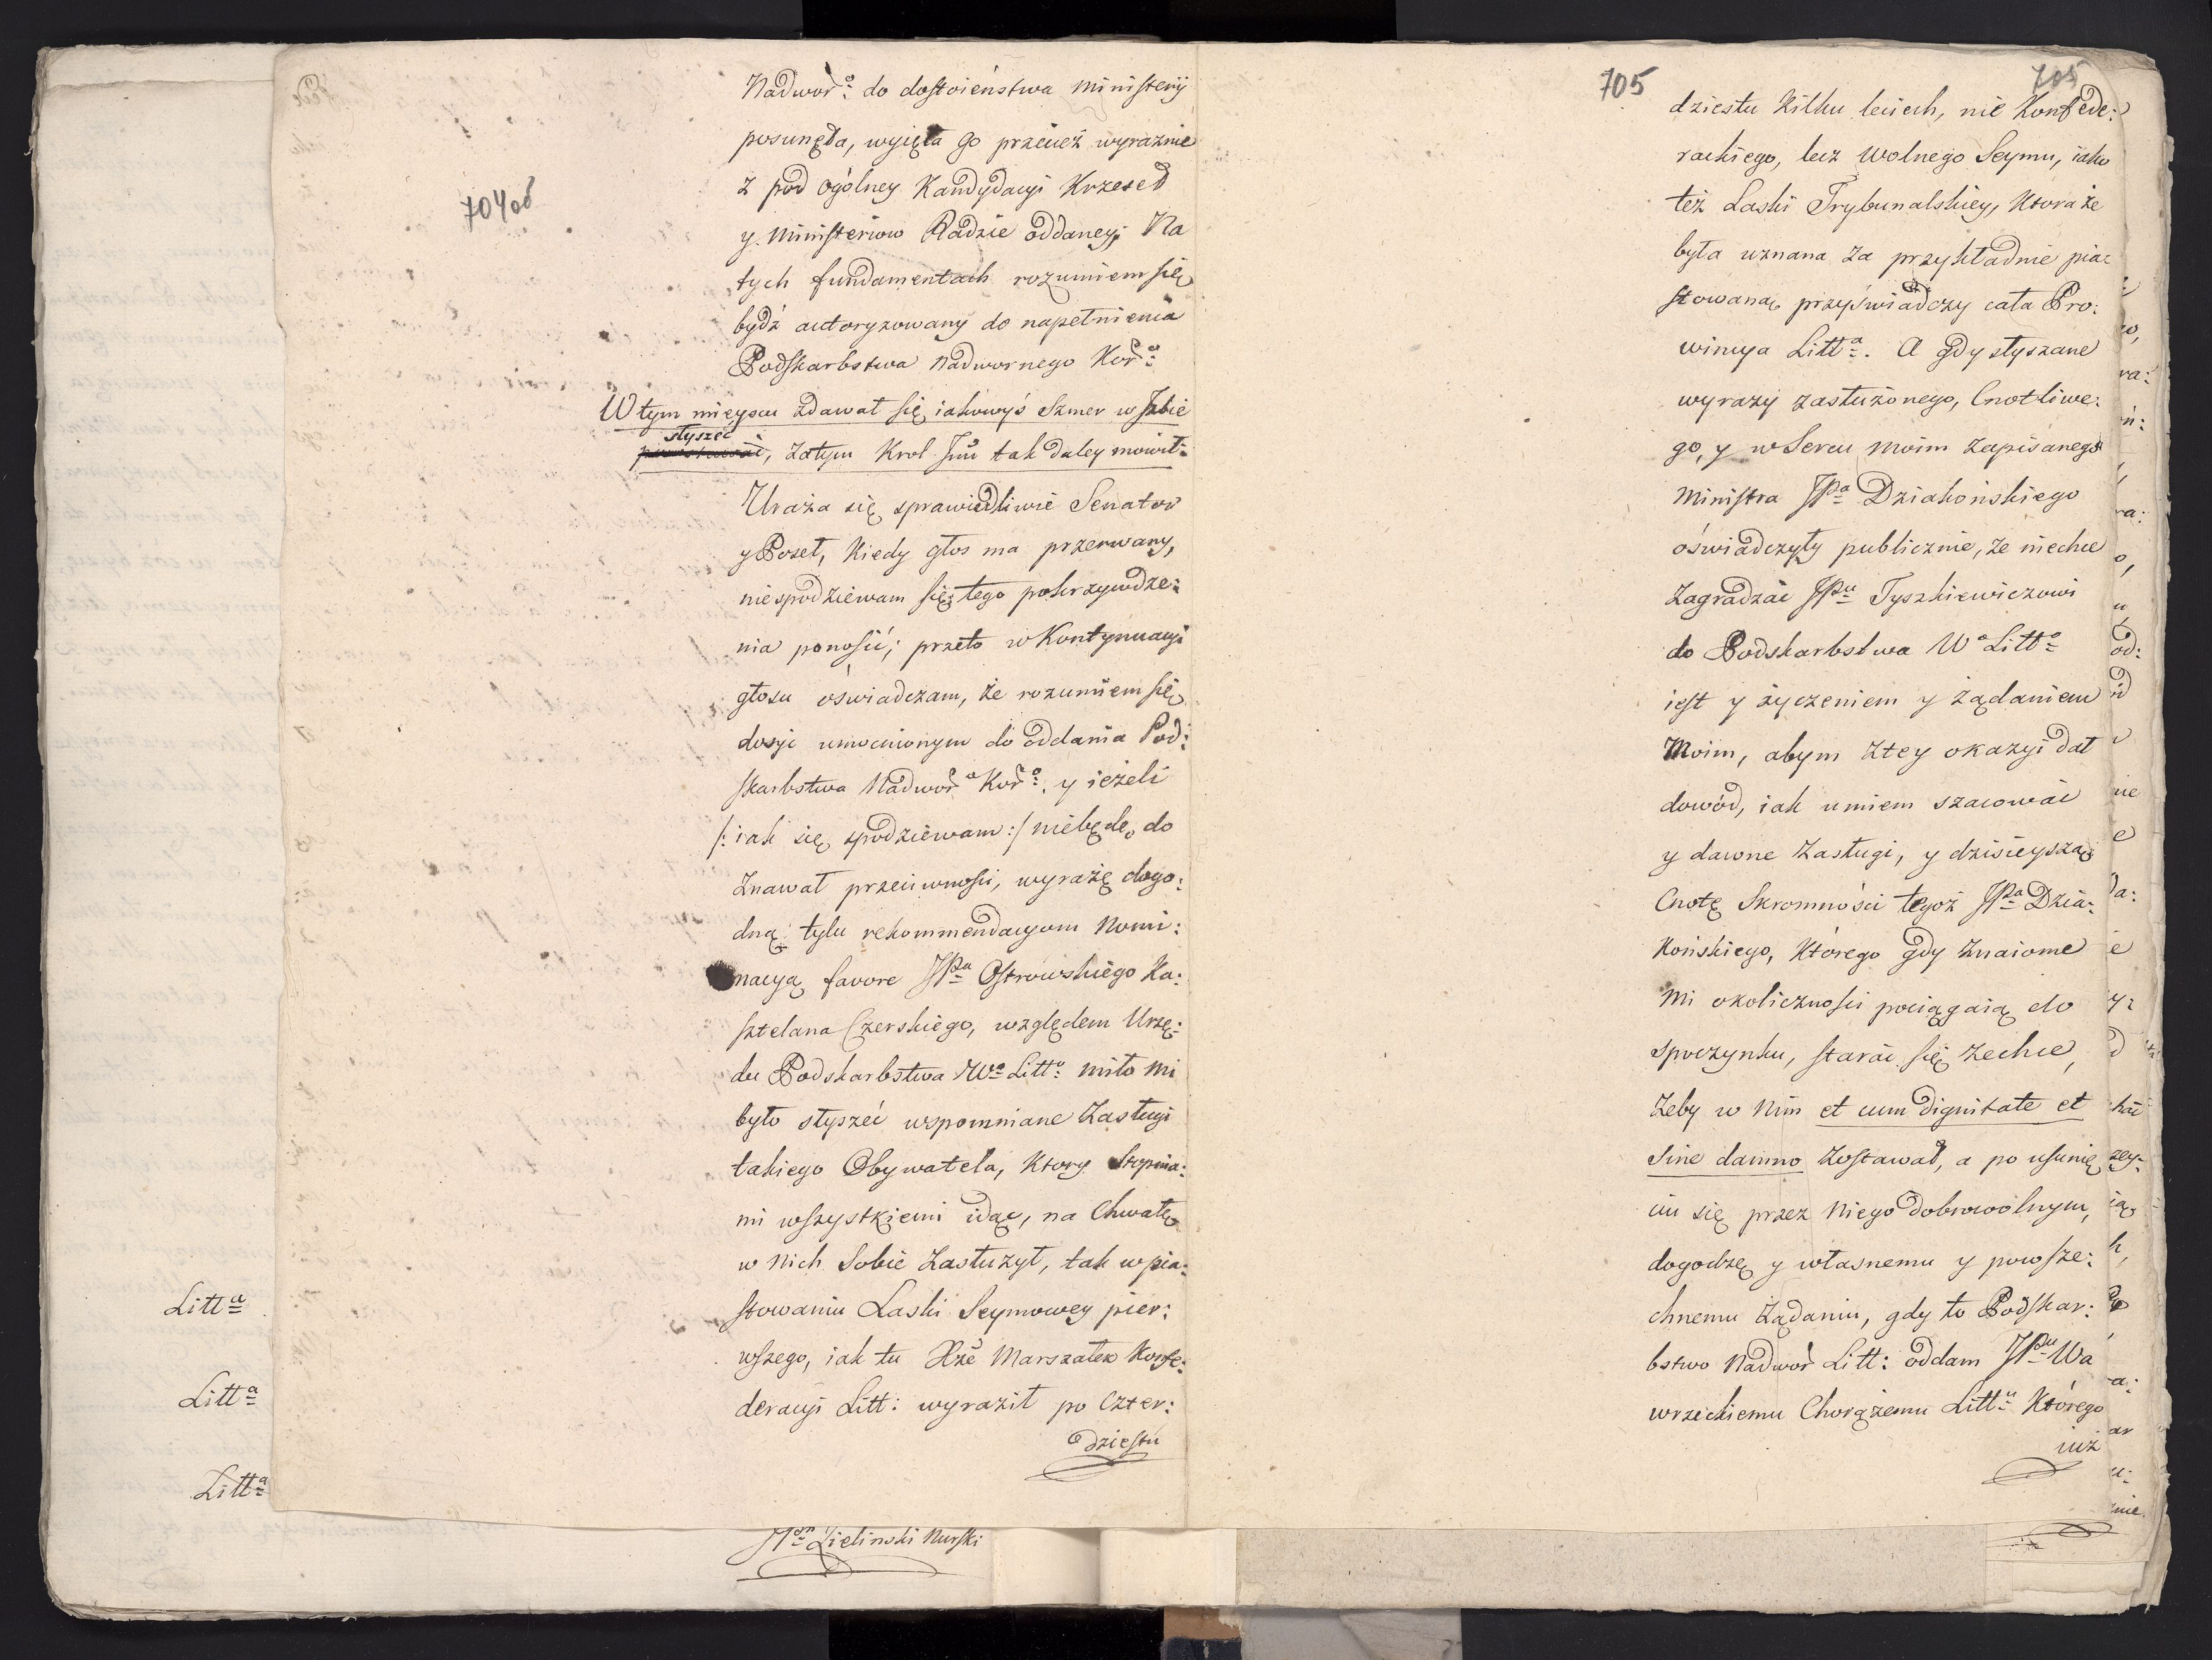 704 ob
Nadwor:º do dostoieństwa Ministerij
posunęła, wyięła go przeciez wyraznie
z pod ogólney Kandydacyi Krzeseł
y Ministeriow Radzie oddaney; Na
tych fundamentach rozumiem się
bydź autoryzowany do napełnienia
Podskarbstwa Nadwornego Kor:º
W tym mieyscu zdawał się iakowyś Szmer w Izbie
słyszeć
, zatym Krol Jmć tak daley mowił:
Uraża się sprawiedliwie Senator
y Poseł, kiedy głos ma przerwany,
niespodziewam się tego pokrzywdze:
nia ponosić; przeto w Kontynuacyi
głosu oświadczam, że rozumiem się
dosyć umocnionym do oddania Pod:
skarbstwa Nadwor:º Kor:º, y ieżeli
/: iak się spodziewam :/ niebędę do
znawał przeciwności, wyrażę dogo:
dną tylu rekommendacyom Nomi:
nacyą favore JPa Ostrowskiego Ka:
sztelana Czerskiego, względem Urzę:
du Podskarbstwa Wº Littº miło mi
było słyszeć wspomniane Zasługi
takiego Obywatela, ktory Stopnia:
mi wszystkiemi idąc, na Chwałę
w nich Sobie Zasłużył, tak w pia:
stowaniu Laski Seymowey pier:
wszego, iak tu Xże Marszałek Konfe:
deracyi Litt: wyraził po Czter:
dziestu
Litta
Litta
Litta
JPn Zielinski Nurski
705
705
dziestu kilku leciech, nie Konfede:
rackiego, lecz wolnego Seymu, iako
też Laski Trybunalskiey, Ktora że
była uznana za przykładnie pia:
stowaną, przyświadczy cała Pro:
wincya Litta. A gdy słyszane
wyrazy zasłużonego, Cnotliwe:
go, y w Sercu moim Zapisanego
Ministra JPa Dziakońskiego
oświadczyły publicznie, że niechce
Zagradzać JPu Tyszkiewiczowi
do Podskarbstwa Wº Littº
iest y życzeniem y żądaniem
Moim, abym z tey okazyi dał
dowód, iak umiem szacować
y dawne Zasługi, y dzisieyszą
Cnotę Skromności tegoż JPa Dzia:
końskiego, Którego gdy Znaiome
mi okoliczności pociągaią do
spoczynku, starać się zechcę,
Zeby w nim et cum dignitate et
sine damno Zostawał, a po usunię
ciu się przez niego dobrowolnym,
dogodzę y własnemu y powsze:
chnemu żądaniu, gdy to Podskar:
bstwo Nadwor Litt: oddam JPu Wa
wrzeckiemu Chorążemu Littu Którego
iuż